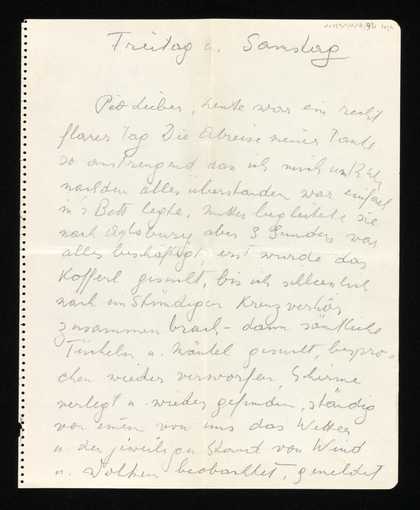 Freitag u. Samstag
lieber, heute war ein recht
Tag Die Abreise meiner Tante
so anstrengend dass ich mich um
nachdem alles überstanden war einfach
in's Bett legte, begleitete sie
nach aber 3 Stunden war
alles beschäftigt, erst wurde das
Kofferl gesucht, bis ich schliesslich
nach Kreuzverhör
zusammen brach – dann sämtliche
u. Mäntel gesucht, bespro-
chen wieder verworfen, Schirme
verlegt u. wieder gefunden, ständig
von einem von uns das Wetter
u. der jeweilige Stand von Wind
u. Wolken beobachtet, gemeldet